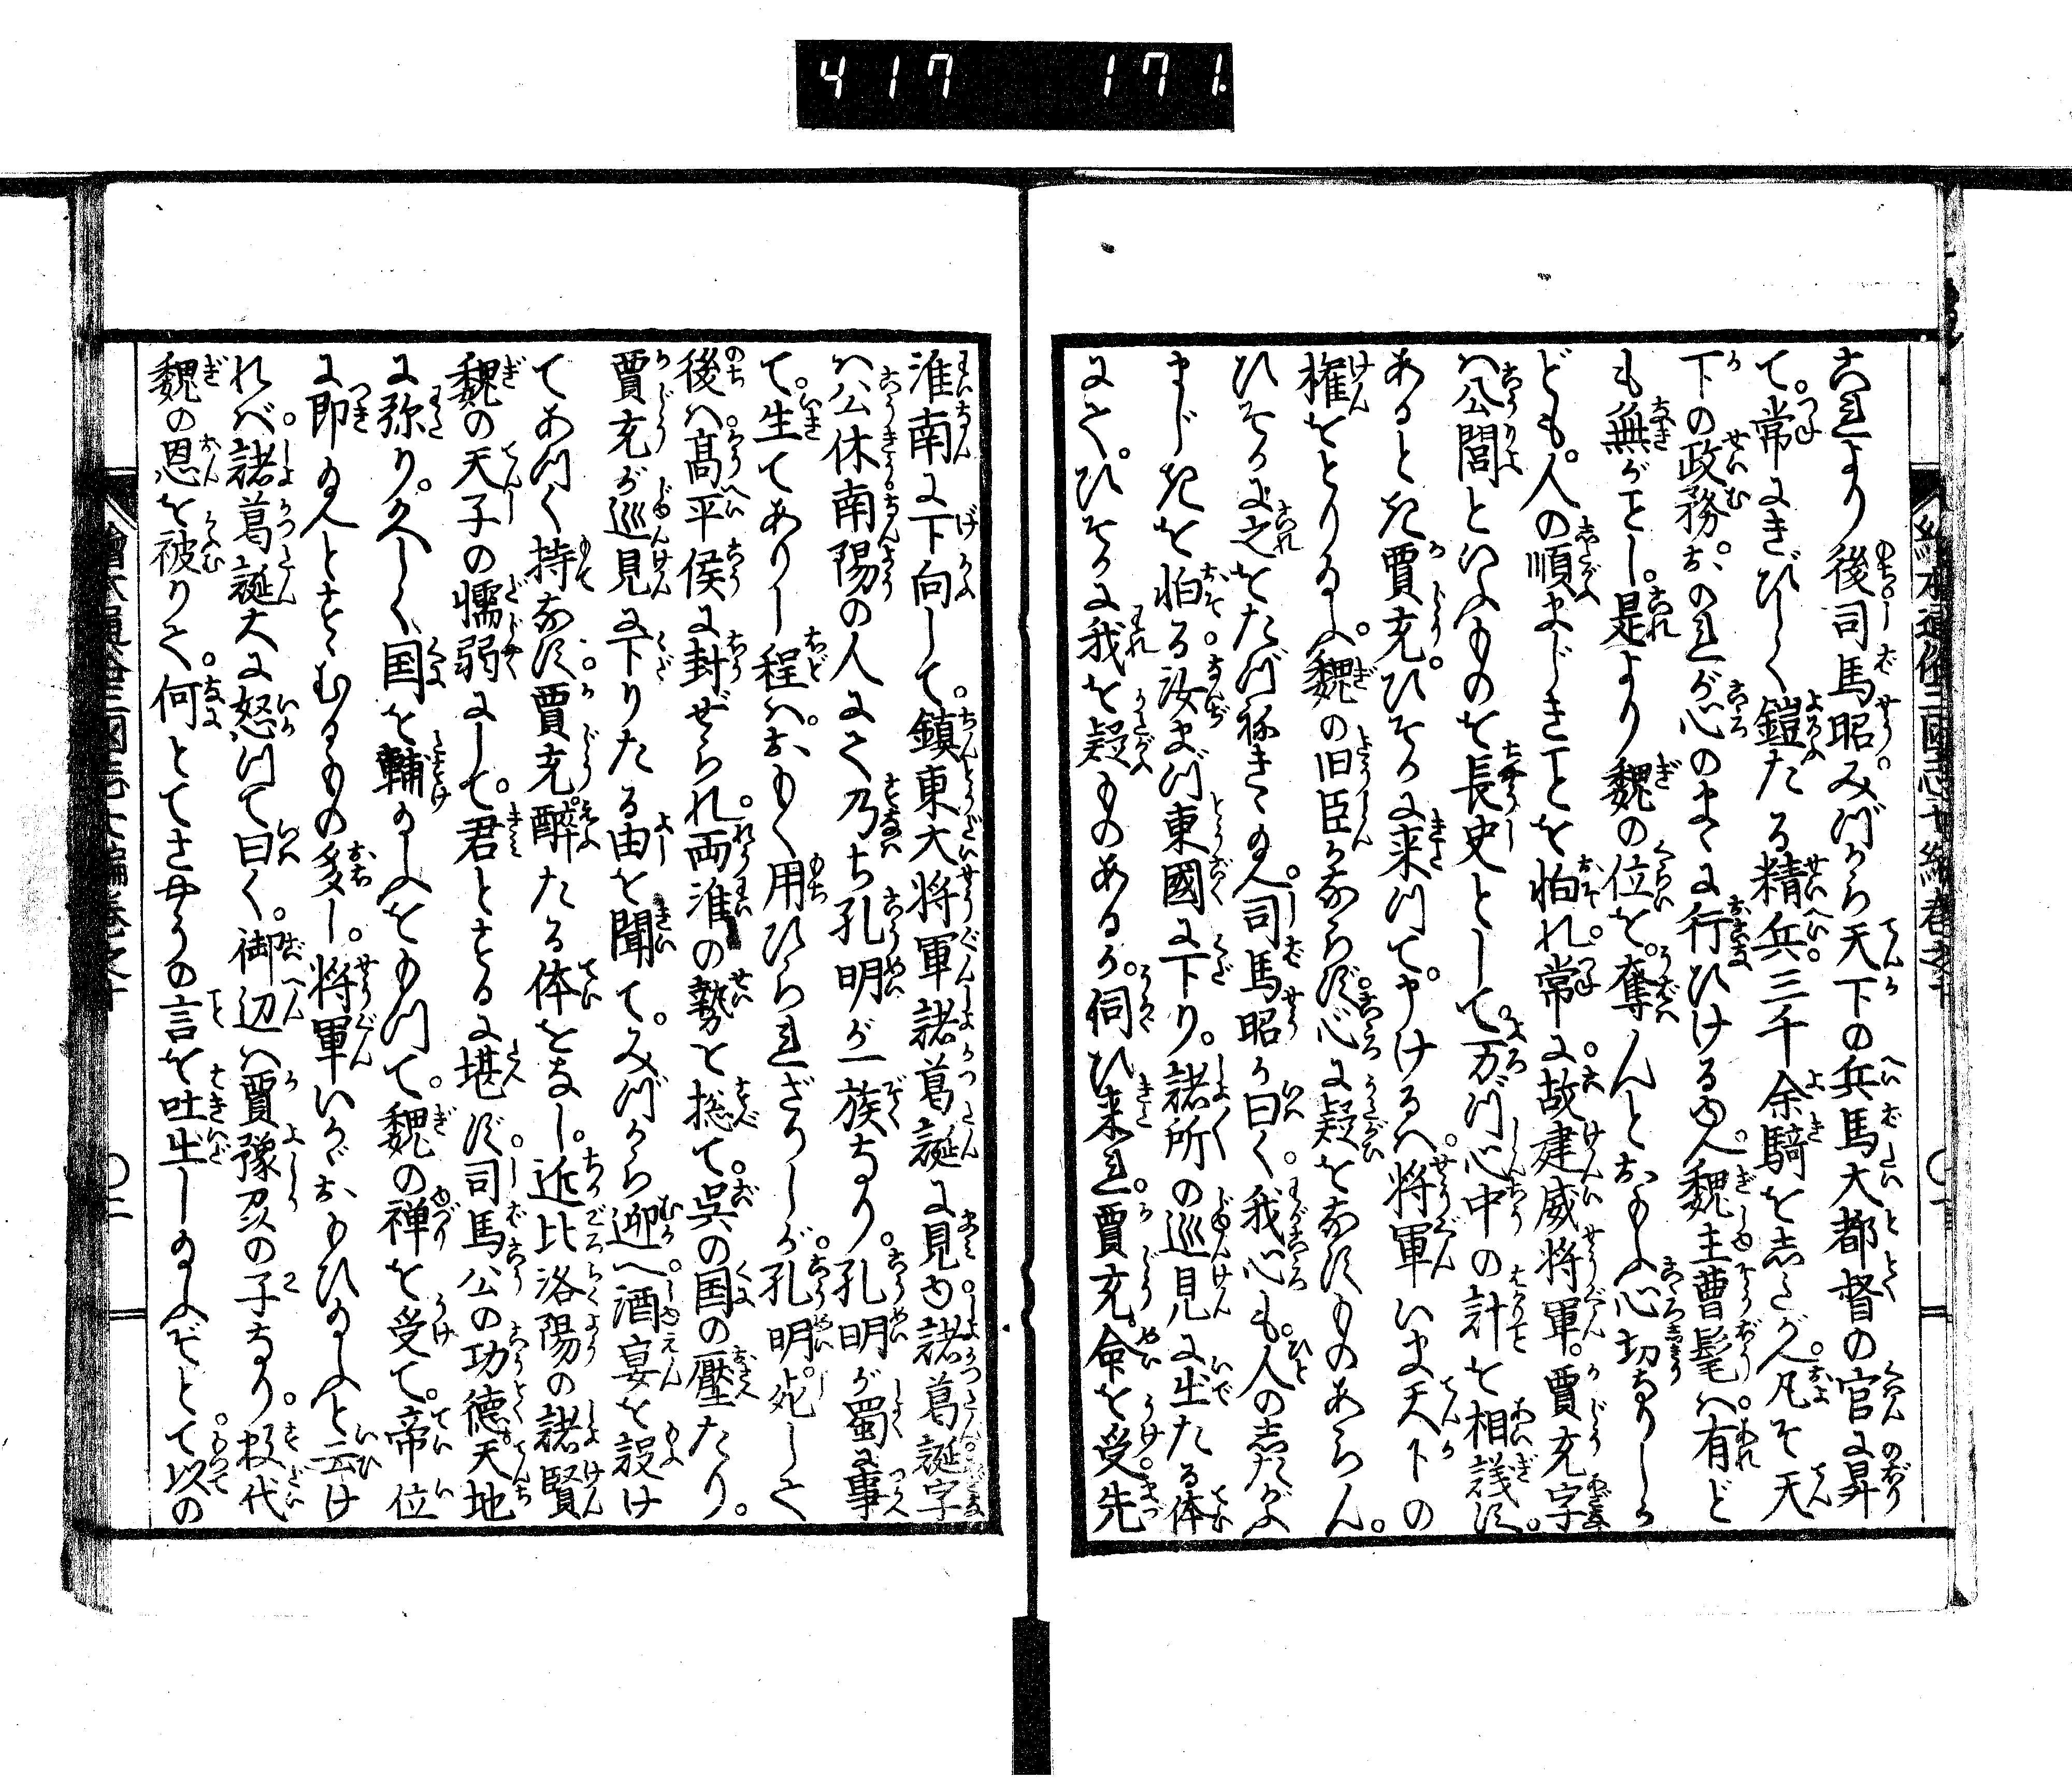 417 171.
これより後司馬昭。みづから天下の兵馬大都督の官に昇
て。常にきびしく鎧たる精兵。三千余騎をしたがへ。凡そ天
下の政務。おのれが心のまゝに行ひける故。魏主曹髦は有ど
も無がごとし。是より魏の位を。奪んとおもふ心切なりしか
ども。人の順まじきことを怕れ。常に故建威将軍。賈充字
は公閭といふものを長史として。万づ心中の計を相議す。
あるとき賈充。ひそかに来つて。申けるは。将軍いま天下の
権をとり給ふ。魏の旧臣かならず。心に疑をなすものあらん。
ひそかに之をたづねきゝ給へ。司馬昭が曰く。我心も。人の志たがふ
まじきを怕る。汝まづ東國に下り。諸所の巡見に出たる体
にて。ひそかに我を疑ものあるか。伺ひ来れ。賈充。命を受。先
淮南に下向して。鎮東大将軍諸葛誕に見ゆ。諸葛誕。字
は公休南陽の人にて乃ち孔明が一族なり。孔明が蜀に事
て。生てありし程は。おもく用ひられざりしが。孔明。死して
後は。高平侯に封ぜられ。両淮の勢を揔て。呉の国の壓たり。
賈充が巡見に下りたる由を聞て。みづから迎へ。酒宴を設け
てあつく持なす。賈充。酔たる体をなし。近比洛陽の諸賢
魏の天子の懦弱にして。君とするに堪ず。司馬公の功徳。天地
に弥り。久しく国を輔給ふをもつて。魏の禅を受て。帝位
に即給へとすゝむるもの多し。将軍いかゞおもひ給ふと云け
れば。諸葛誕大に怒つて曰く。御辺は賈豫州の子なり。抜代
魏の恩を被りて。何とてさやうの言を吐出し給ふぞとて。以の